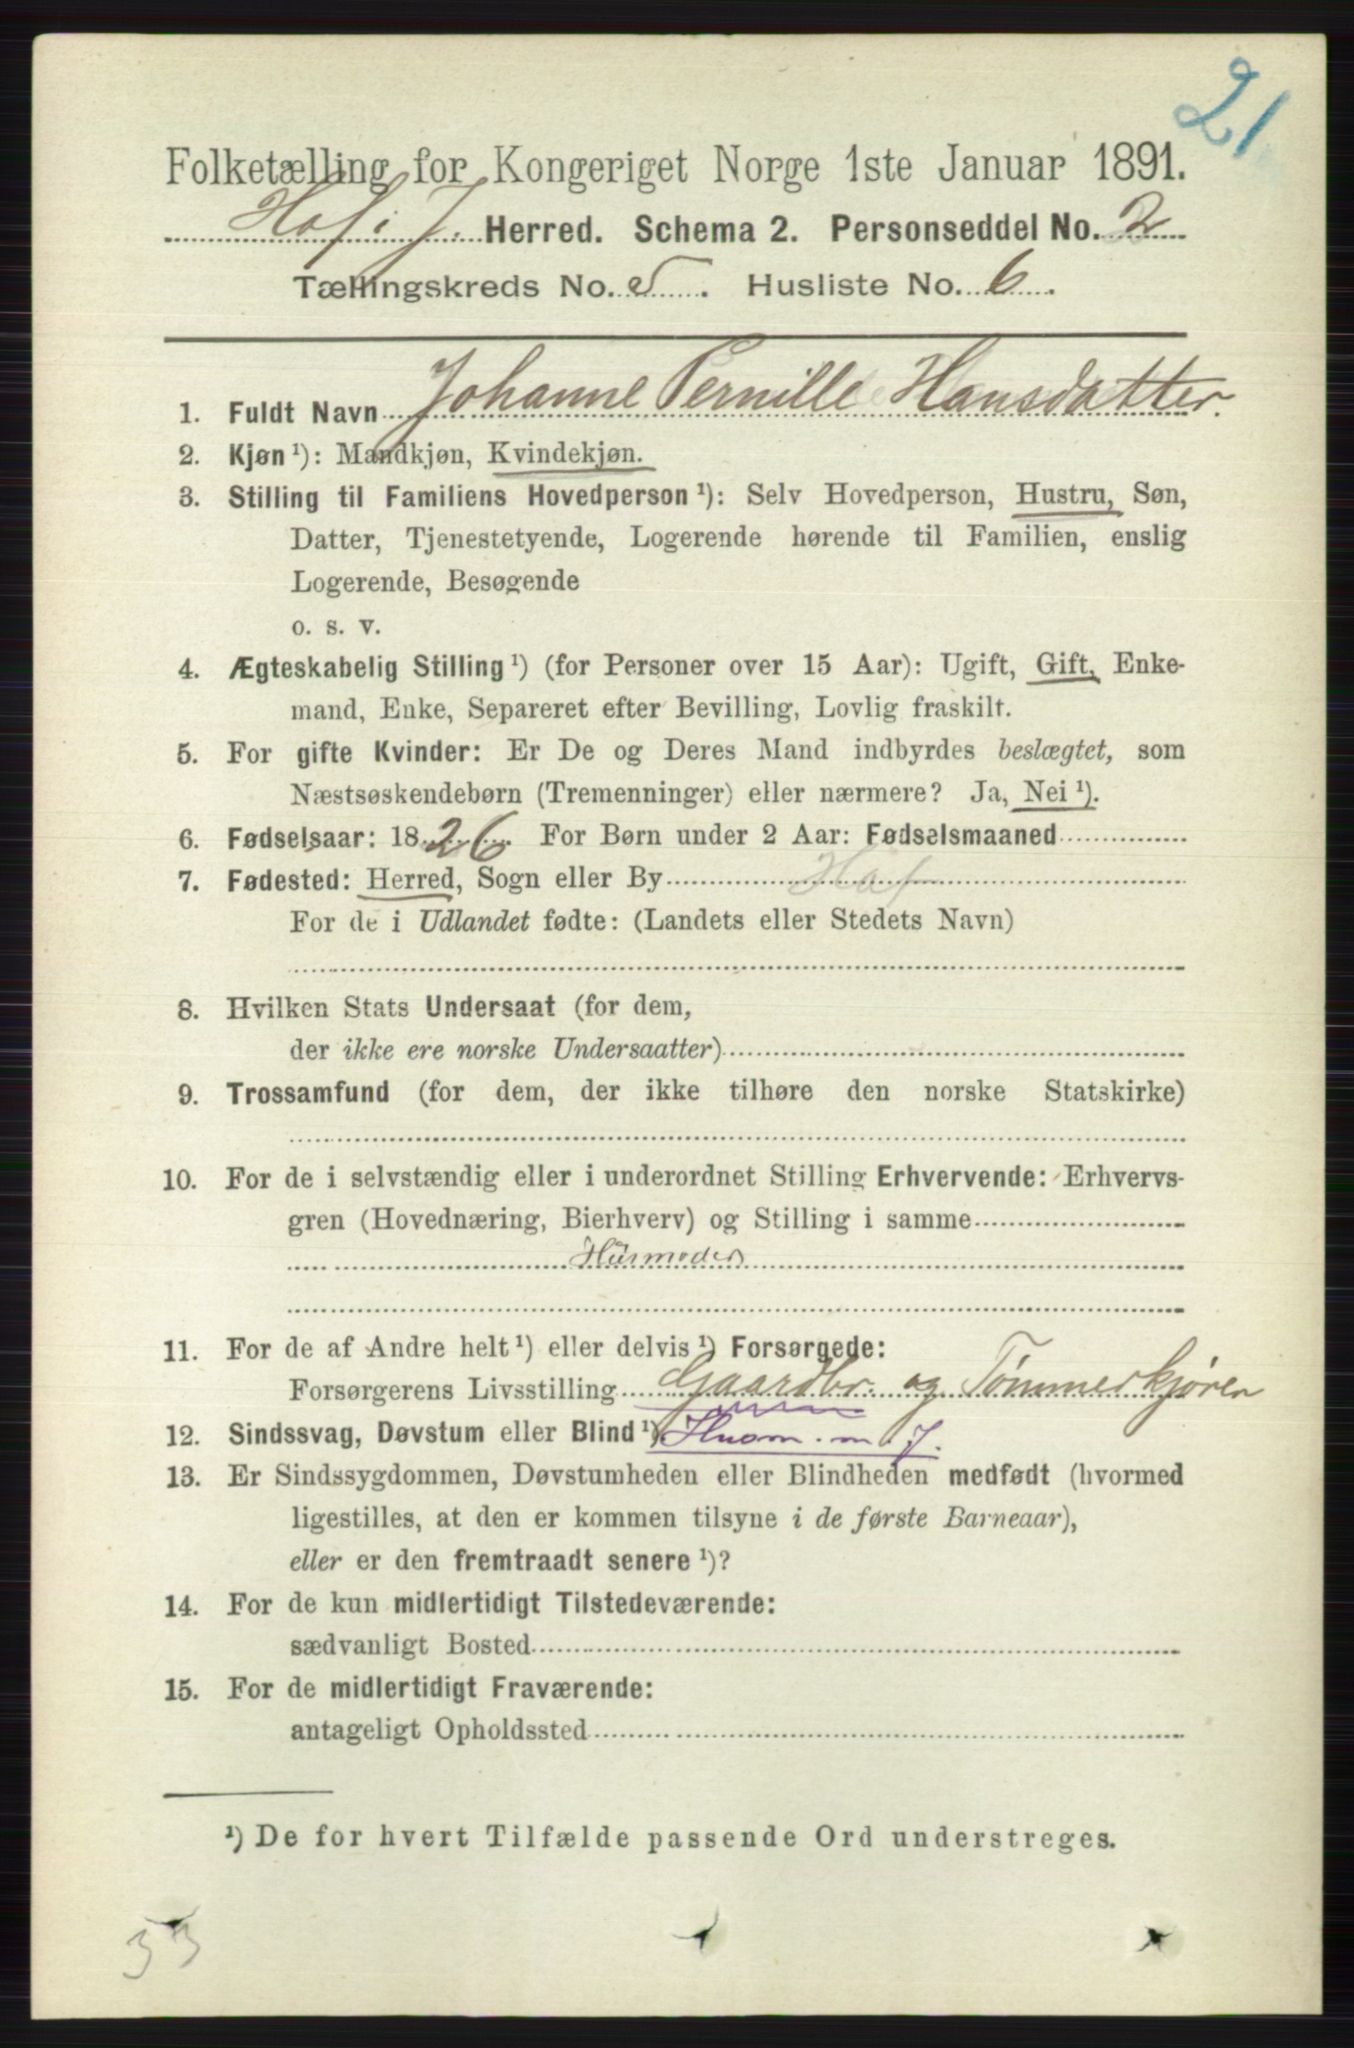 21
Folketælling for Kongeriget Norge 1ste Januar 1891.
Hof i J. Herred. Schema 2. Personseddel No. 2
Tællingskreds No. 5. Husliste No. 6.
1. Fuldt Navn Johanne Pernille Hansdatter.
2. Kjøn ¹): Mandkjøn, Kvindekjøn.
3. Stilling til Familiens Hovedperson ¹): Selv Hovedperson, Hustru, Søn,
Datter, Tjenestetyende, Logerende hørende til Familien, enslig
Logerende, Besøgende
o. s. v.
4. Ægteskabelig Stilling ¹) (for Personer over 15 Aar): Ugift, Gift, Enke-
mand, Enke, Separeret efter Bevilling, Lovlig fraskilt.
5. For gifte Kvinder: Er De og Deres Mand indbyrdes beslægtet, som
Næstsøskendebørn (Tremenninger) eller nærmere? Ja, Nei ¹).
6. Fødselsaar: 1826. For Børn under 2 Aar: Fødselsmaaned
7. Fødested: Herred, Sogn eller By Hof
For de i Udlandet fødte: (Landets eller Stedets Navn)
8. Hvilken Stats Undersaat (for dem,
der ikke ere norske Undersaatter)
9. Trossamfund (for dem, der ikke tilhøre den norske Statskirke)
10. For de i selvstændig eller i underordnet Stilling Erhvervende: Erhvervs-
gren (Hovednæring, Bierhverv) og Stilling i samme
Husmoder
11. For de af Andre helt ¹) eller delvis ¹) Forsørgede:
Forsørgerens Livsstilling Gaardbr. og Tømmerkjører
12. Sindssvag, Døvstum eller Blind ¹). Husm. m. J.
13. Er Sindssygdommen, Døvstumheden eller Blindheden medfødt (hvormed
ligestilles, at den er kommen tilsyne i de første Barneaar),
eller er den fremtraadt senere ¹)?
14. For de kun midlertidigt Tilstedeværende:
sædvanligt Bosted
15. For de midlertidigt Fraværende:
antageligt Opholdssted
¹) De for hvert Tilfælde passende Ord understreges.
33